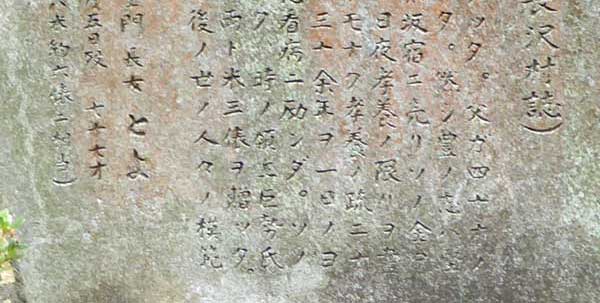 長沢村誌)
ッタ。父ガ四十才ノ
タ。咲シ豊ノ志ハ
坂宿ニ売リソノ金
日夜孝養ノ限リヲ
モナク孝養ノ疏ニナ
三十余年ヲ一日ノヨ
看病ニ励ンダ。ソノ
グ 時ノ領主巨勢氏
両ト米三俵ヲ贈ッタ。
後ノ世ノ人々ノ模範
門 長女 とよ
五日歿 七十七才
米約六俵ニ相当)